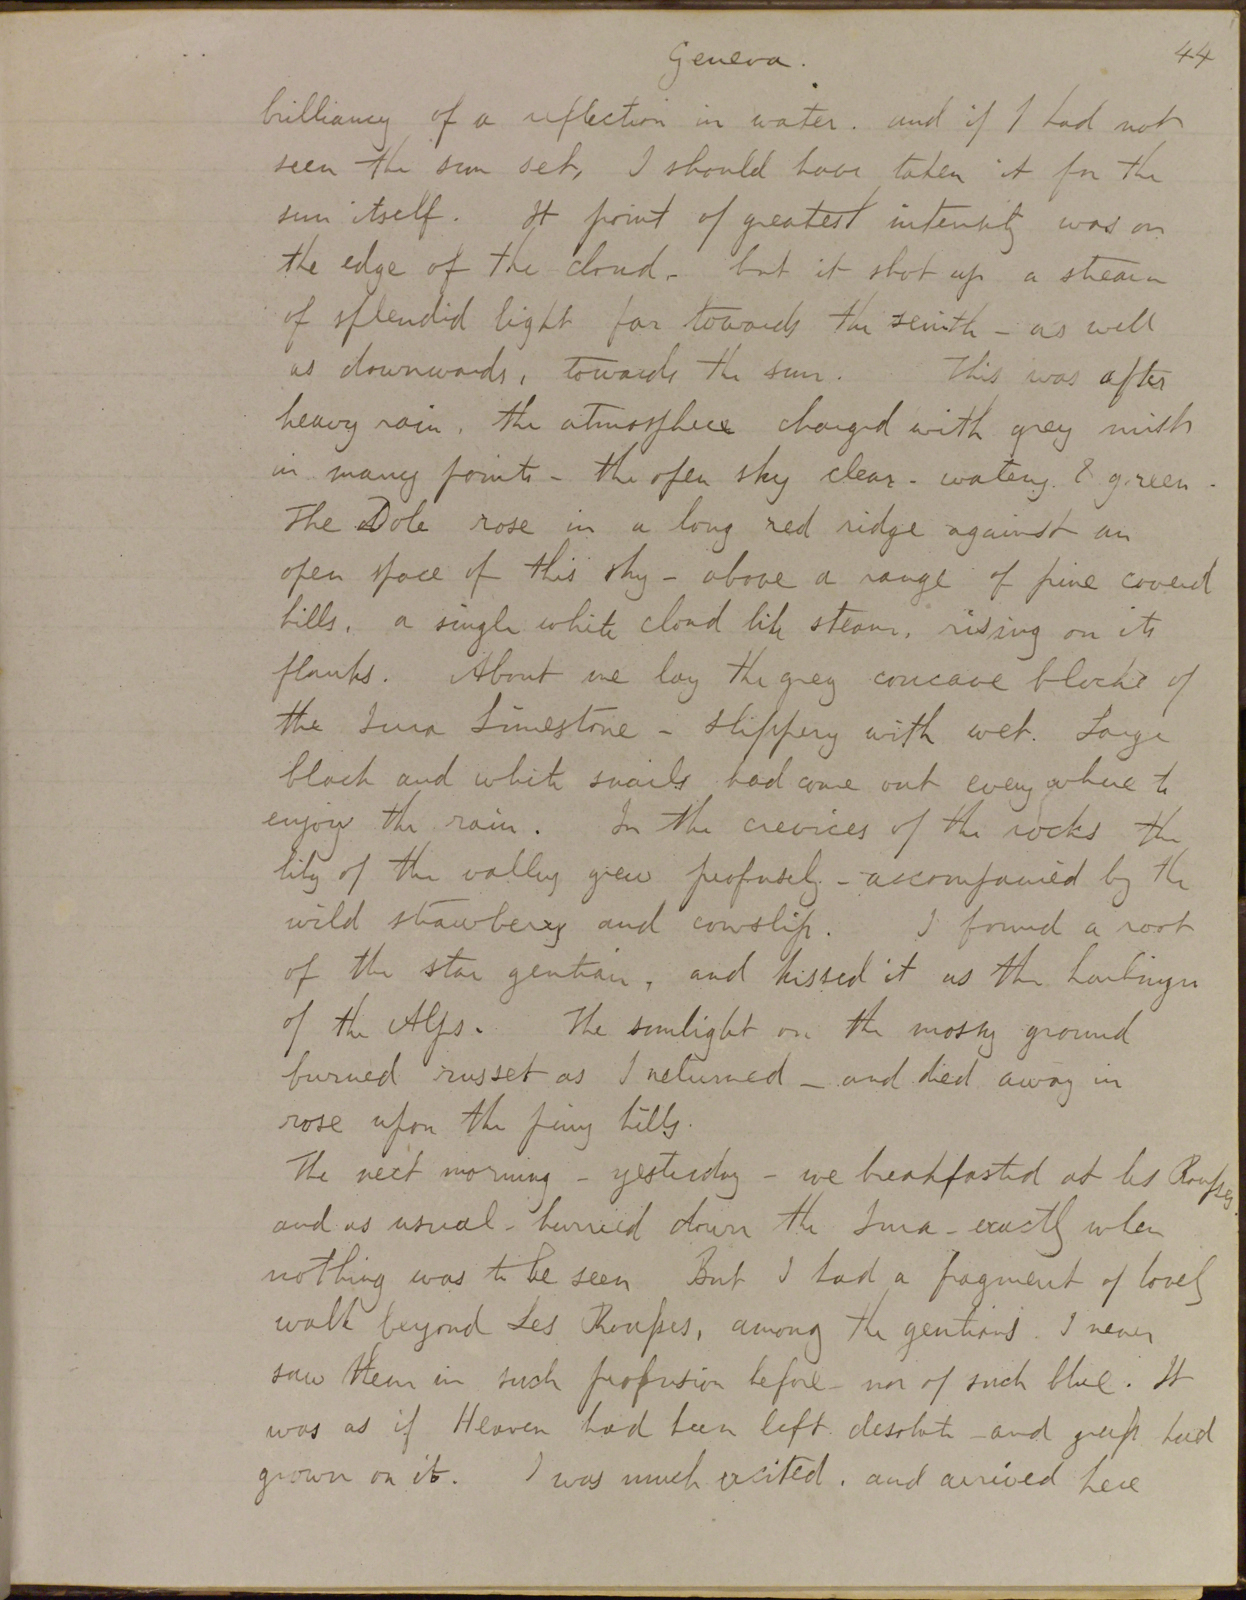 Geneva.
44
brilliancy of a reflection in water. and if I had not
seen the sun set, I should have taken it for the
sun itself. It point of greatest intensity was on
the edge of the cloud - but it shot up a stream
of splendid light far towards the zenith - as well
as downwards, towards the sun. This was after
heavy rain, the atmosphere charged with grey mist
in many points - the open sky clear - watery & green -
The Dole rose in a long red ridge against an
open space of this sky - above a range of pine coverd
hills, a single white cloud like steam, rising on its
flanks. About me lay the grey concave blocks of
the Jura Limestone - slippery with wet. Large
black and white snails had come out every where to
enjoy the rain. In the crevices of the rocks the
lily of the valley grew profusely - accompanied by the
wild strawberry and cowslip. I found a root
of the star gentian, and kissed it as the harbinger
of the Alps. The sunlight on the mossy ground
burned russet as I returned - and died away in
rose upon the piny hills.
The next morning - yesterday - we breakfasted at Les Rousses.
and as usual - hurried down the Jura - exactly when
nothing was to be seen But I had a fragment of lovely
walk beyond Les Rousses, among the gentians. I never
saw them in such profusion before - nor of such blue. It
was as if Heaven had been left desolate - and grass had
grown on it. I was much excited. and arrived here